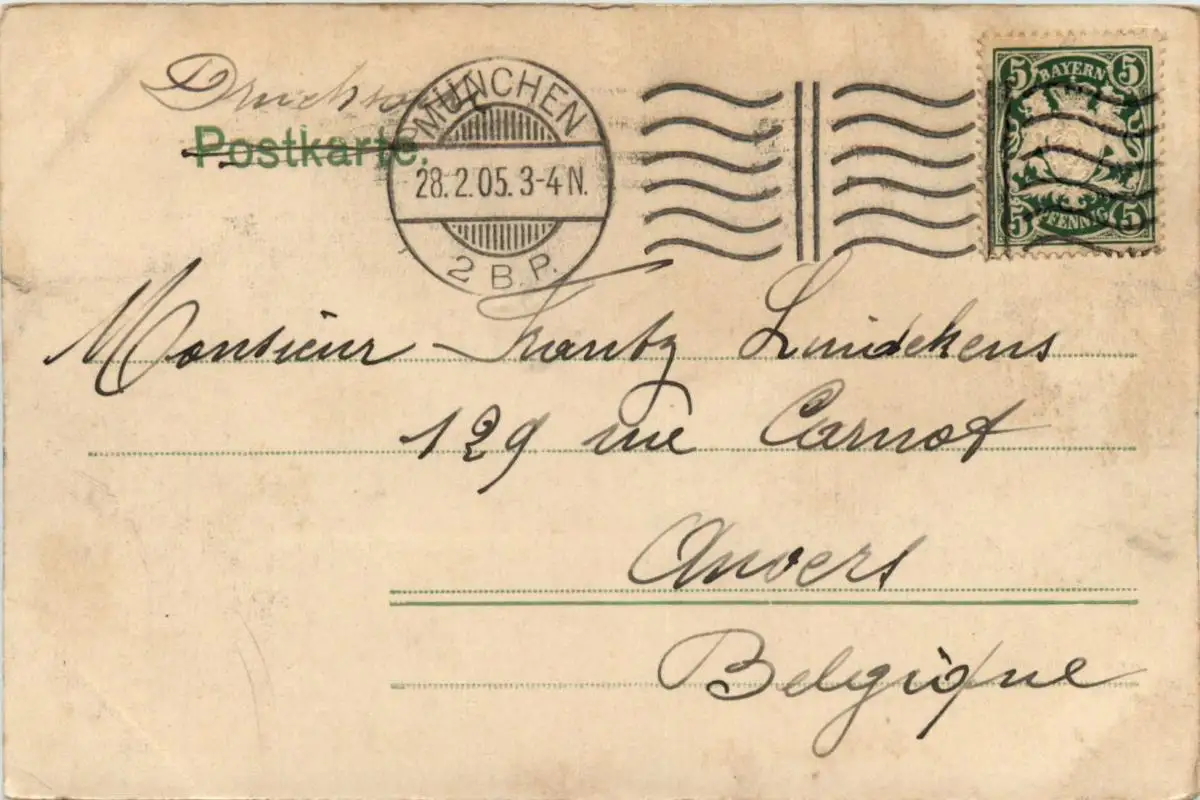 Drucksache
Postkarte.
MÜNCHEN
28.2.05. 3-4 N.
2 B.P.
5 BAYERN 5
5 PFENNIG 5
Monsieur Frantz Lindekens
129 rue Carnot
Anvers
Belgique